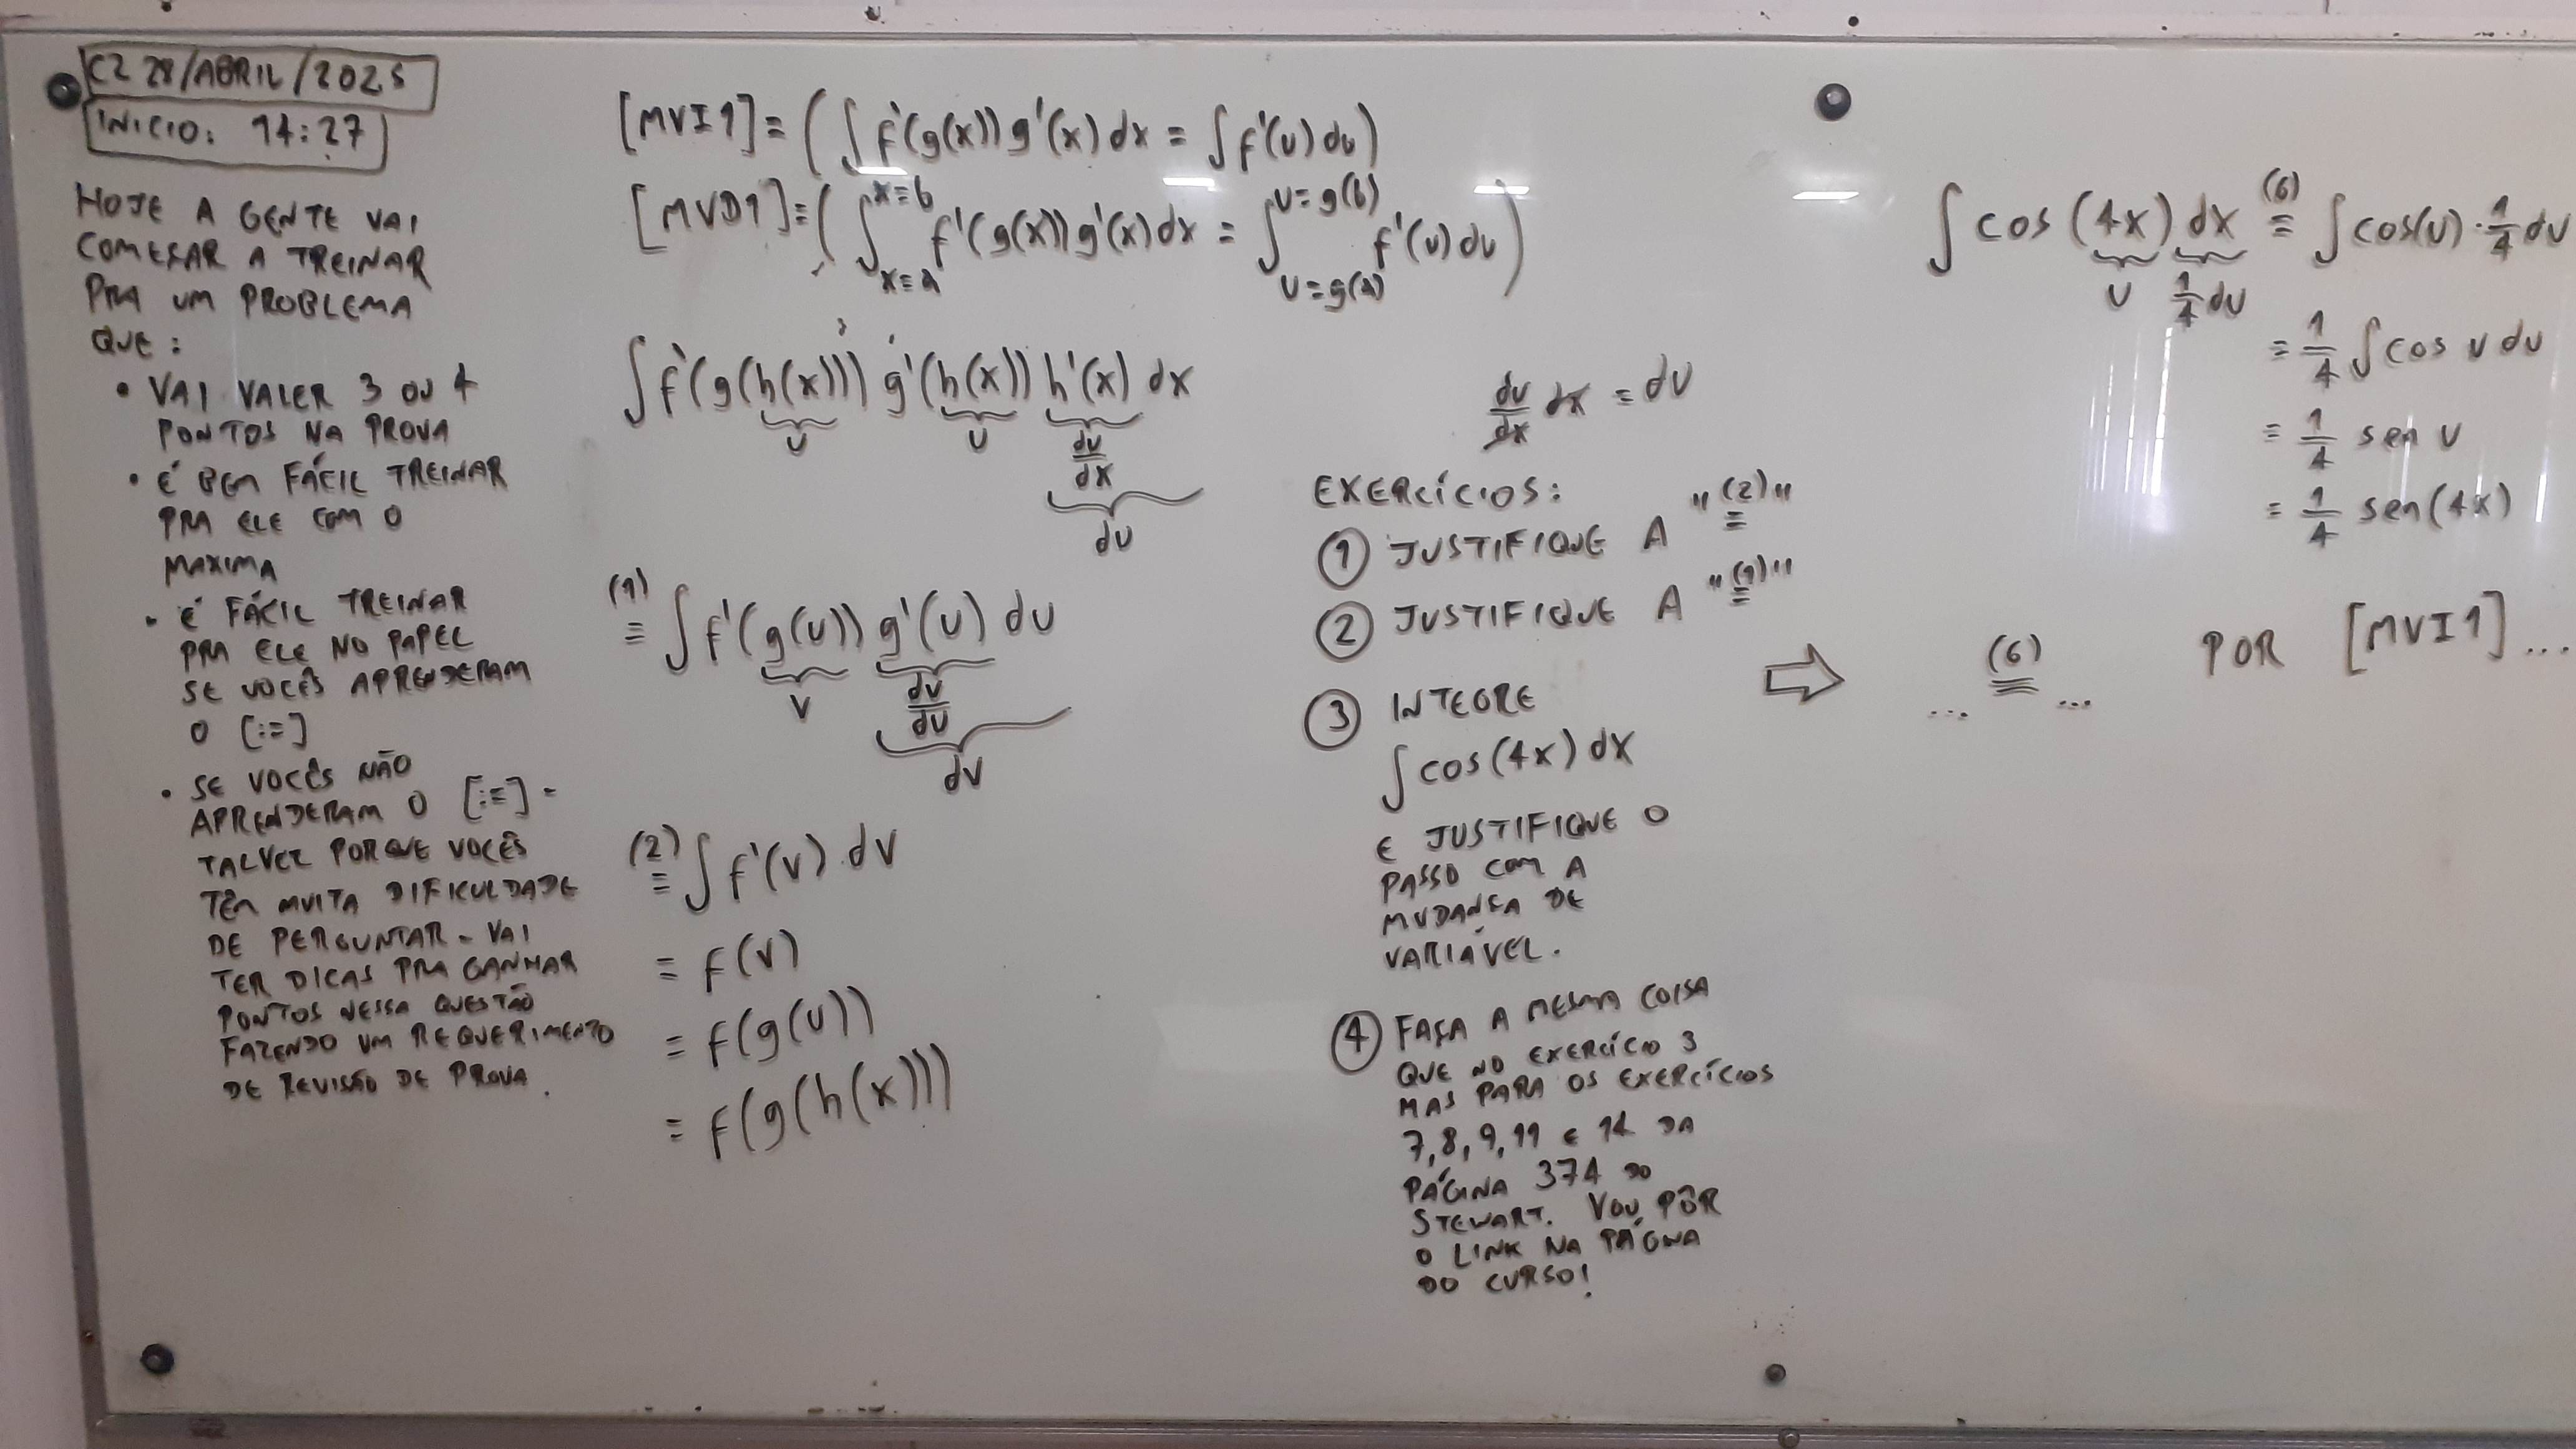 C2 28/ABRIL/2025
INICIO: 14:27
HOJE A GENTE VAI
COMEÇAR A TREINAR
PRA UM PROBLEMA
QUE:
• VAI VALER 3 OU 4
PONTOS NA PROVA
• É BEM FÁCIL TREINAR
PRA ELE COM O
MAXIMA
• É FÁCIL TREINAR
PRA ELE NO PAPEL
SE VOCÊS APRENDERAM
O [:=]
• SE VOCÊS NÃO
APRENDERAM O [:=] -
TALVEZ PORQUE VOCÊS
TÊM MUITA DIFICULDADE
DE PERGUNTAR - VAI
TER DICAS PRA GANHAR
PONTOS NESSA QUESTÃO
FAZENDO UM REQUERIMENTO
DE REVISÃO DE PROVA.
[MVI1] = (∫ f'(g(x)) g'(x) dx = ∫ f'(u) du)
[MVD1] = (∫_{x=a}^{x=b} f'(g(x)) g'(x) dx = ∫_{u=g(a)}^{u=g(b)} f'(u) du)
∫ f'(g(h(x))) g'(h(x)) h'(x) dx
u u du/dx
du
(1)
= ∫ f'(g(u)) g'(u) du
v dv/du
dv
(2)
= ∫ f'(v) dv
= f(v)
= f(g(u))
= f(g(h(x)))
du/dx dx = du
EXERCÍCIOS:
① JUSTIFIQUE A "(2)="
② JUSTIFIQUE A "(1)="
③ INTEGRE
∫ cos(4x) dx
E JUSTIFIQUE O
PASSO COM A
MUDANÇA DE
VARIÁVEL.
④ FAÇA A MESMA COISA
QUE NO EXERCÍCIO 3
MAS PARA OS EXERCÍCIOS
7, 8, 9, 11 E 14 DA
PÁGINA 374 DO
STEWART. VOU PÔR
O LINK NA PÁGINA
DO CURSO!
∫ cos(4x) dx (6)= ∫ cos(u) · 1/4 du
u 1/4 du
= 1/4 ∫ cos u du
= 1/4 sen u
= 1/4 sen(4x)
⇨ ... (6)= ... POR [MVI1]...